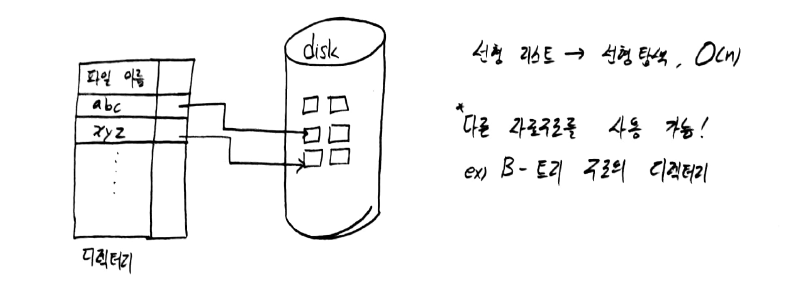 파일 이름
abc
xyz
디렉터리
disk
선형 리스트 → 선형탐색, O(n)
*다른 자료구조를 사용 가능!
ex) B-트리 구조의 디렉터리